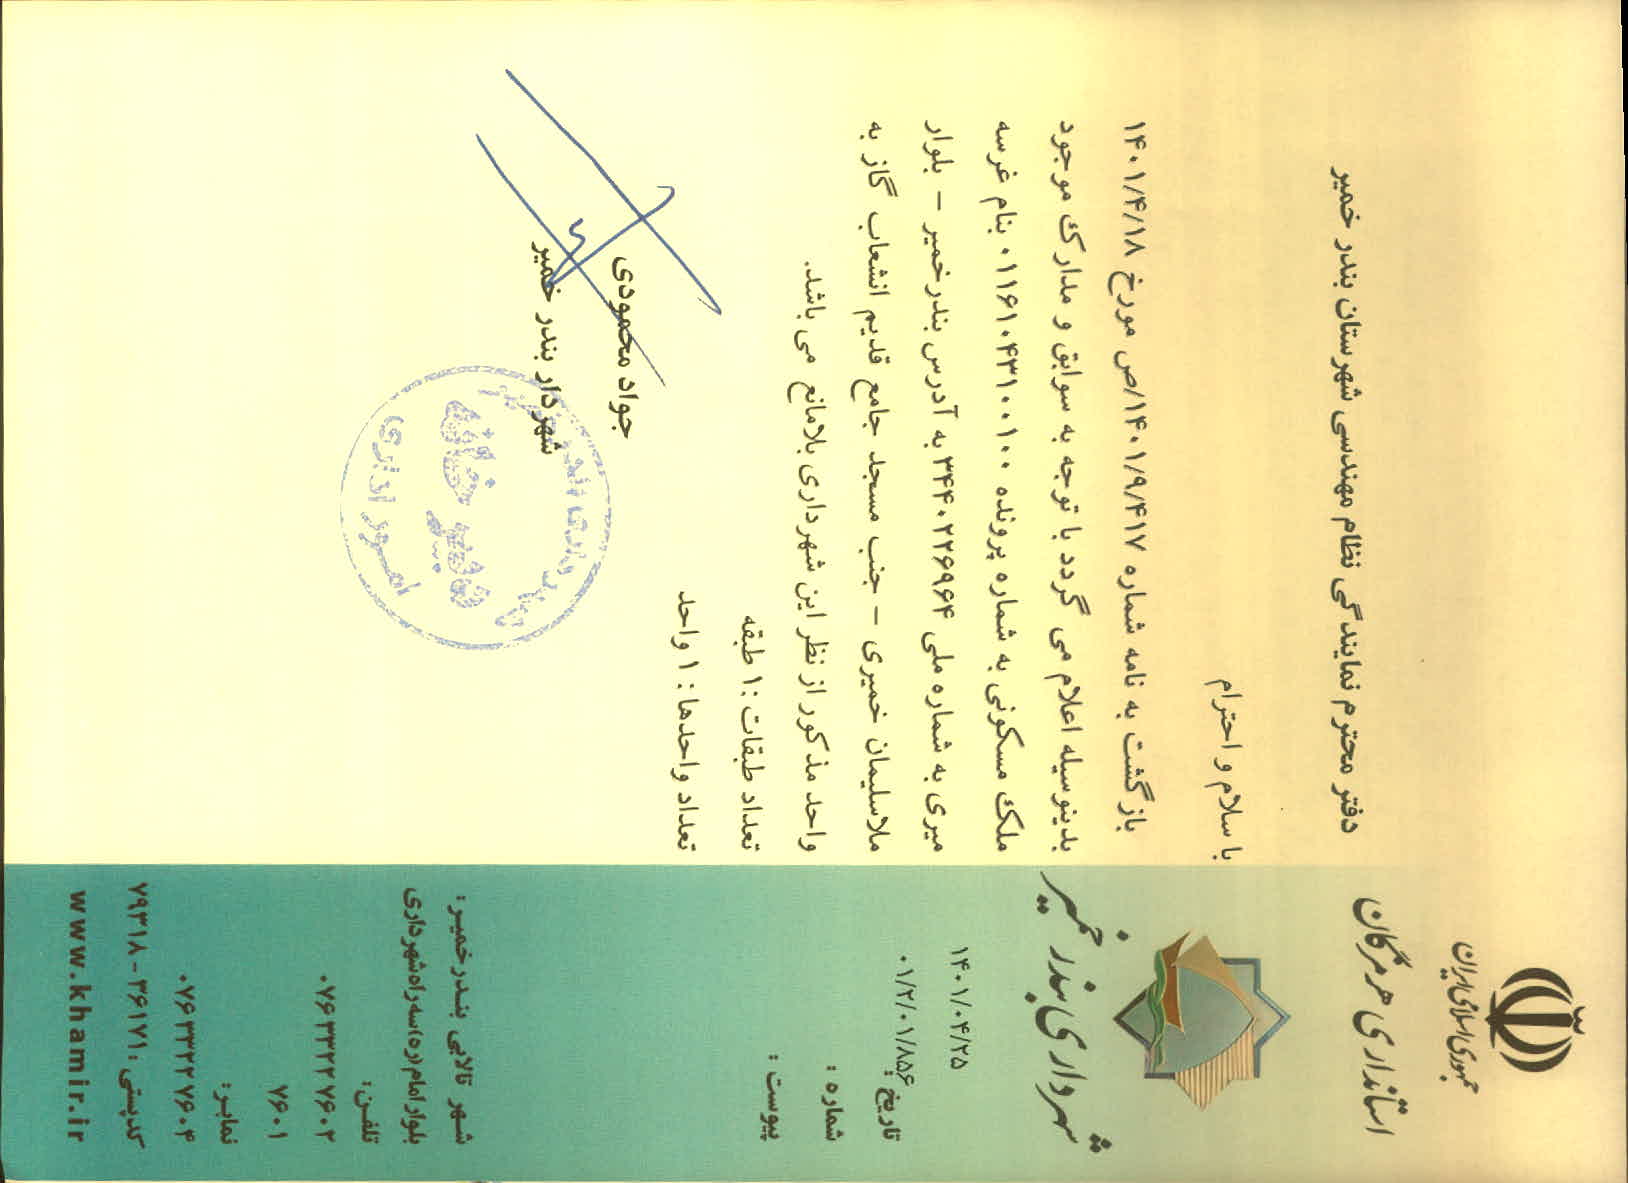 جمهوری اسلامی ایران
استانداری هرمزگان
شهرداری بندر خمیر
۱۴۰۱/۰۴/۲۵
۰۱/۲/۰۱/۸۵۶
تاریخ :
شماره :
پیوست :
دفتر محترم نمایندگی نظام مهندسی شهرستان بندر خمیر
با سلام و احترام
بازگشت به نامه شماره ۱۴۰۱/۹/۴۱۷/ص مورخ ۱۴۰۱/۴/۱۸
بدینوسیله اعلام می گردد با توجه به سوابق و مدارک موجود
ملک مسکونی به شماره پرونده ۰۱۱۶۱۰۴۳۱۰۰۱۰۰ بنام غرسه
میری به شماره ملی ۳۴۴۰۲۲۶۹۶۴ به آدرس بندرخمیر – بلوار
ملاسلیمان خمیری – جنب مسجد جامع قدیم انشعاب گاز به
واحد مذکور از نظر این شهرداری بلامانع می باشد.
تعداد طبقات :۱ طبقه
تعداد واحدها : ۱ واحد
جواد محمودی
شهردار بندر خمیر
امور اداری
شهر تالابی بندرخمیر :
بلوار امام(ره)سه راه شهرداری
تلفن:
۰۷۶۳۳۲۲۷۶۰۲
۷۶۰۱
نمابر:
۰۷۶۳۳۲۲۷۶۰۴
کدپستی : ۳۶۱۷۱ - ۷۹۳۱۸
www.khamir.ir